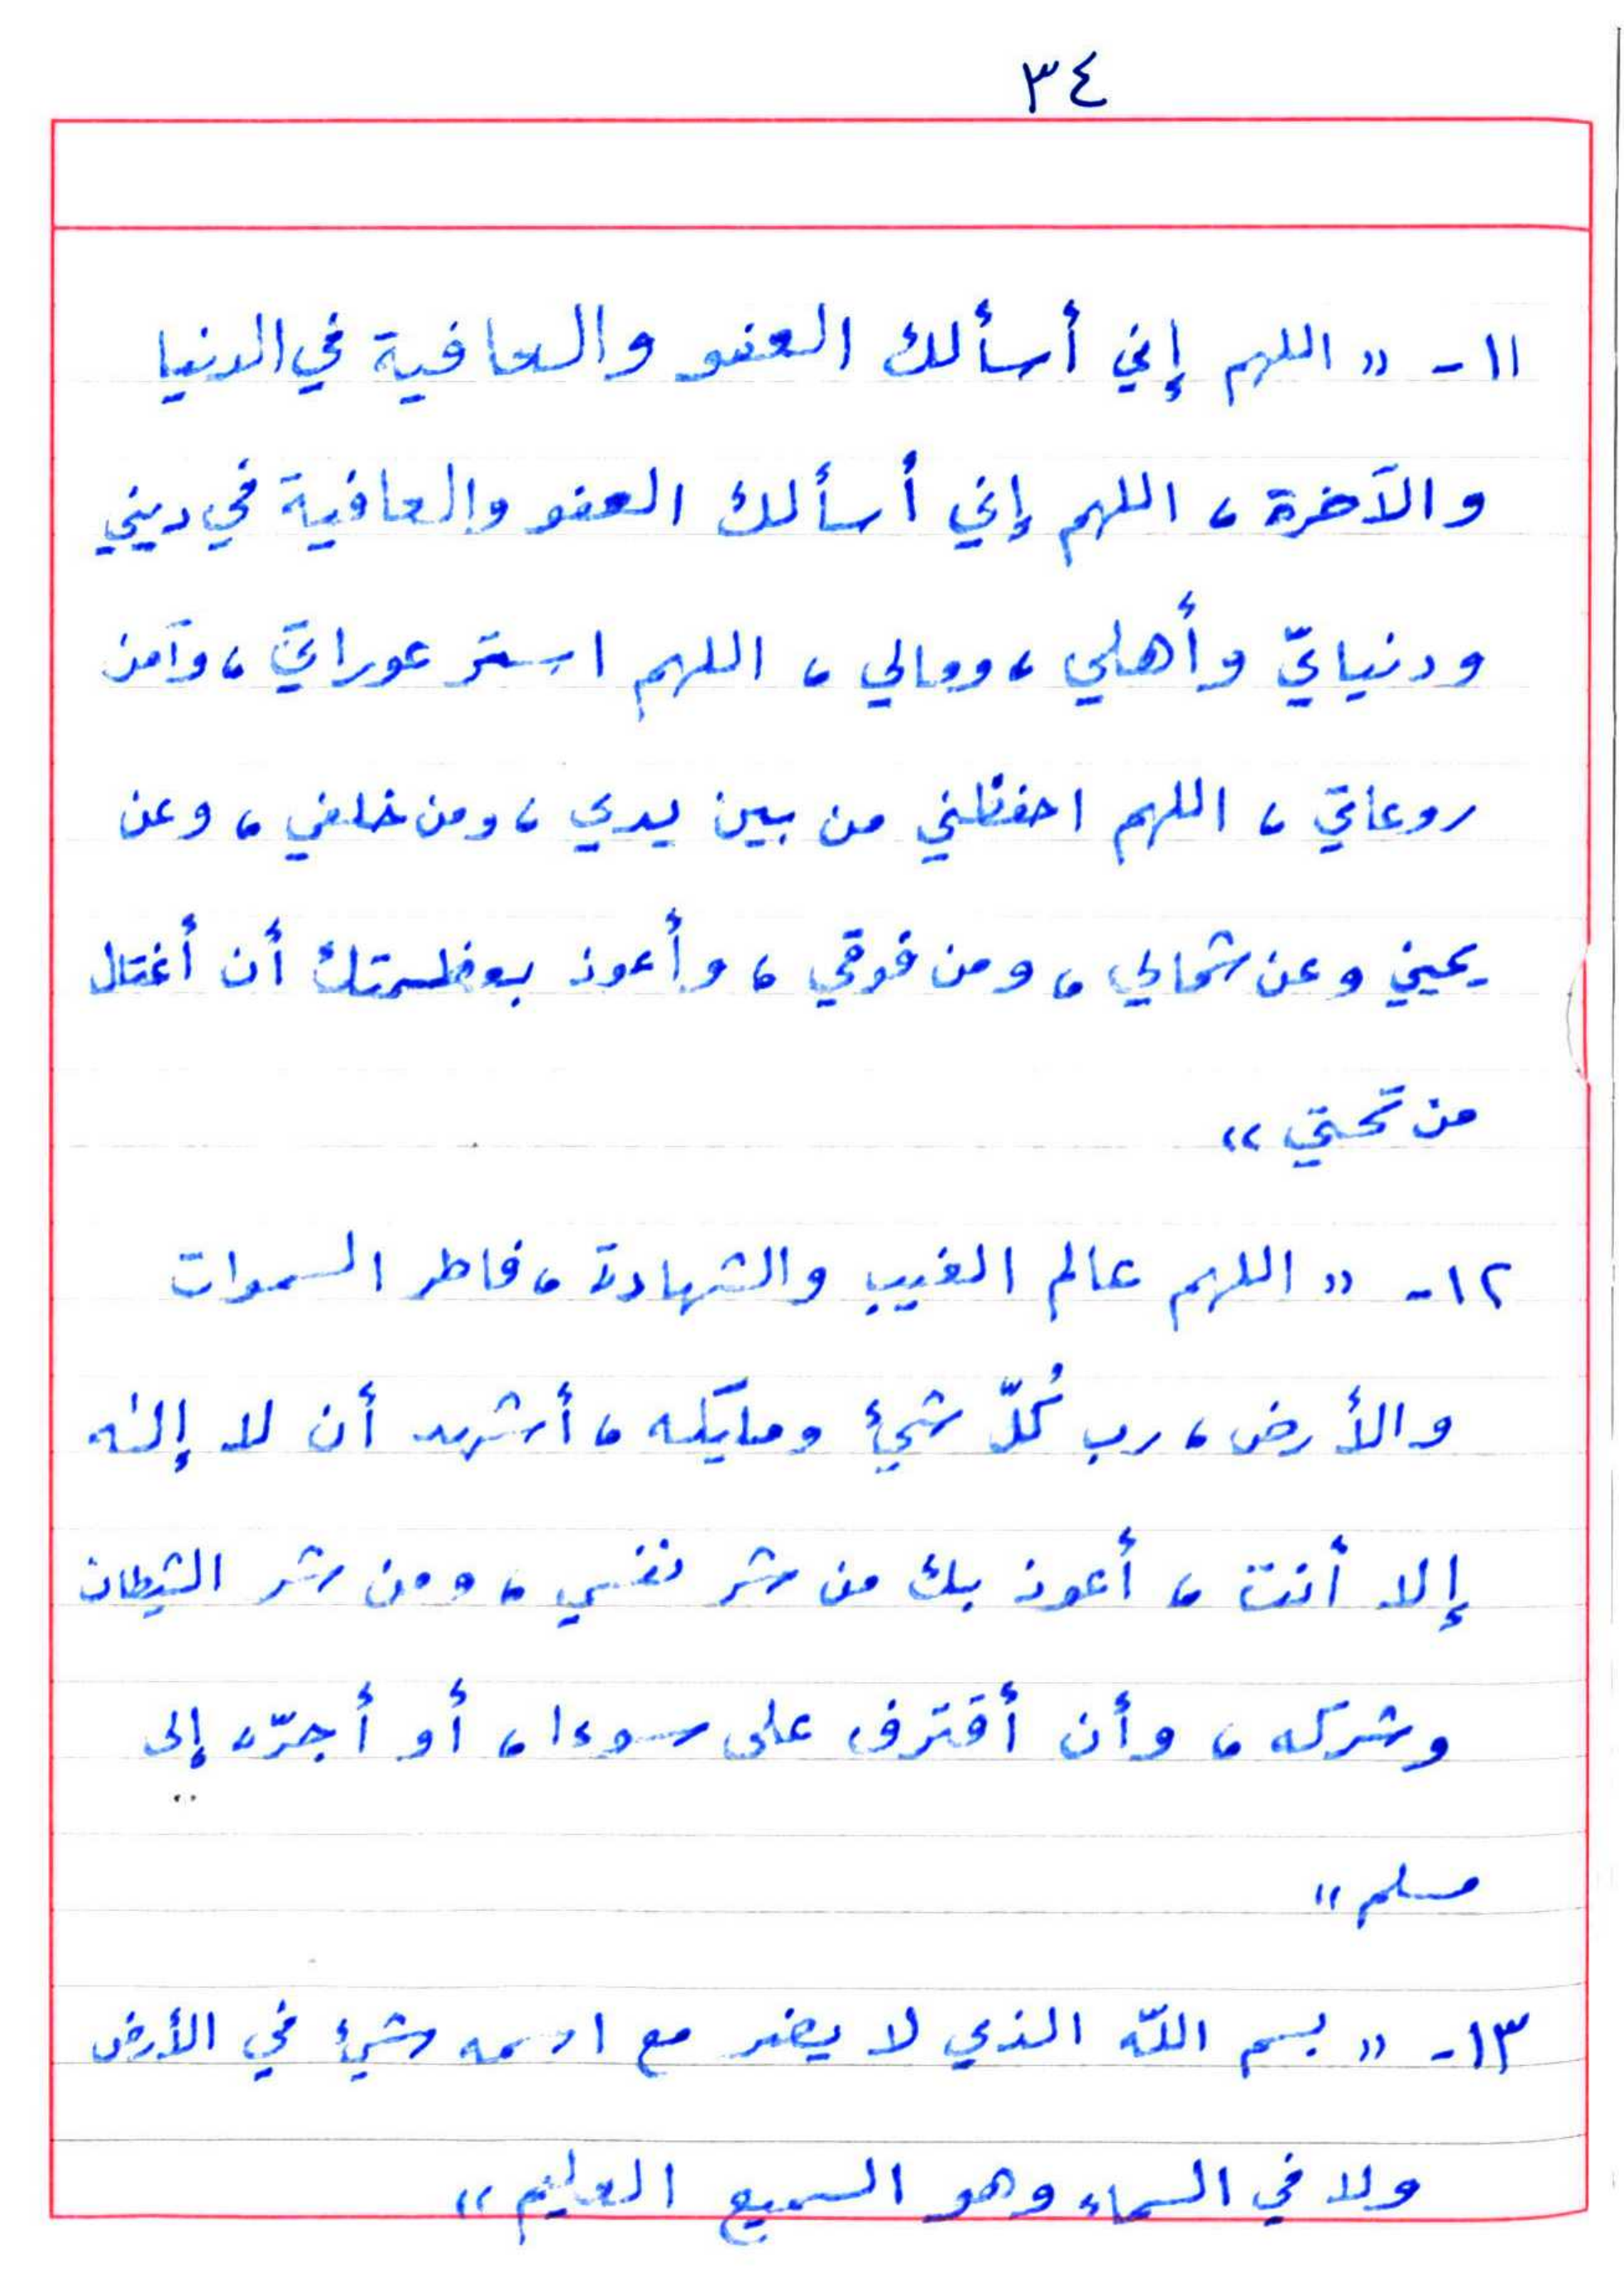 ٣٤
١١- « اللهم إني أسألك العفو والعافية في الدنيا
والآخرة ، اللهم إني أسألك العفو والعافية في ديني
ودنيايّ وأهلي ، ومالي ، اللهم استر عوراتي ، وآمن
روعاتي ، اللهم احفظني من بين يدي ، ومن خلفي ، وعن
يميني وعن شمالي ، ومن فوقي ، وأعوذ بعظمتك أن أغتال
من تحتي »
١٢- « اللهم عالم الغيب والشهادة ، فاطر السموات
والأرض ، رب كُلّ شيئ ومليكه ، أشهد أن لا إله
إلا أنت ، أعوذ بك من شر نفسي ، ومن شر الشيطان
وشركه ، وأن أقترف على سوءا ، أو أجرّه إلى
مسلم »
١٣- « بسم اللّه الذي لا يضر مع اسمه شيئ في الأرض
ولا في السماء وهو السميع العليم »